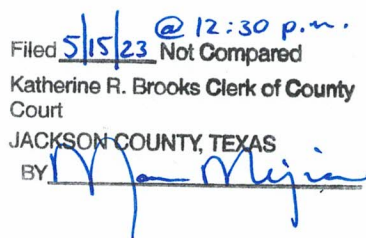 @ 12:30 p.m.
Filed 5/15/23 Not Compared
Katherine R. Brooks Clerk of County
Court
JACKSON COUNTY, TEXAS
BY